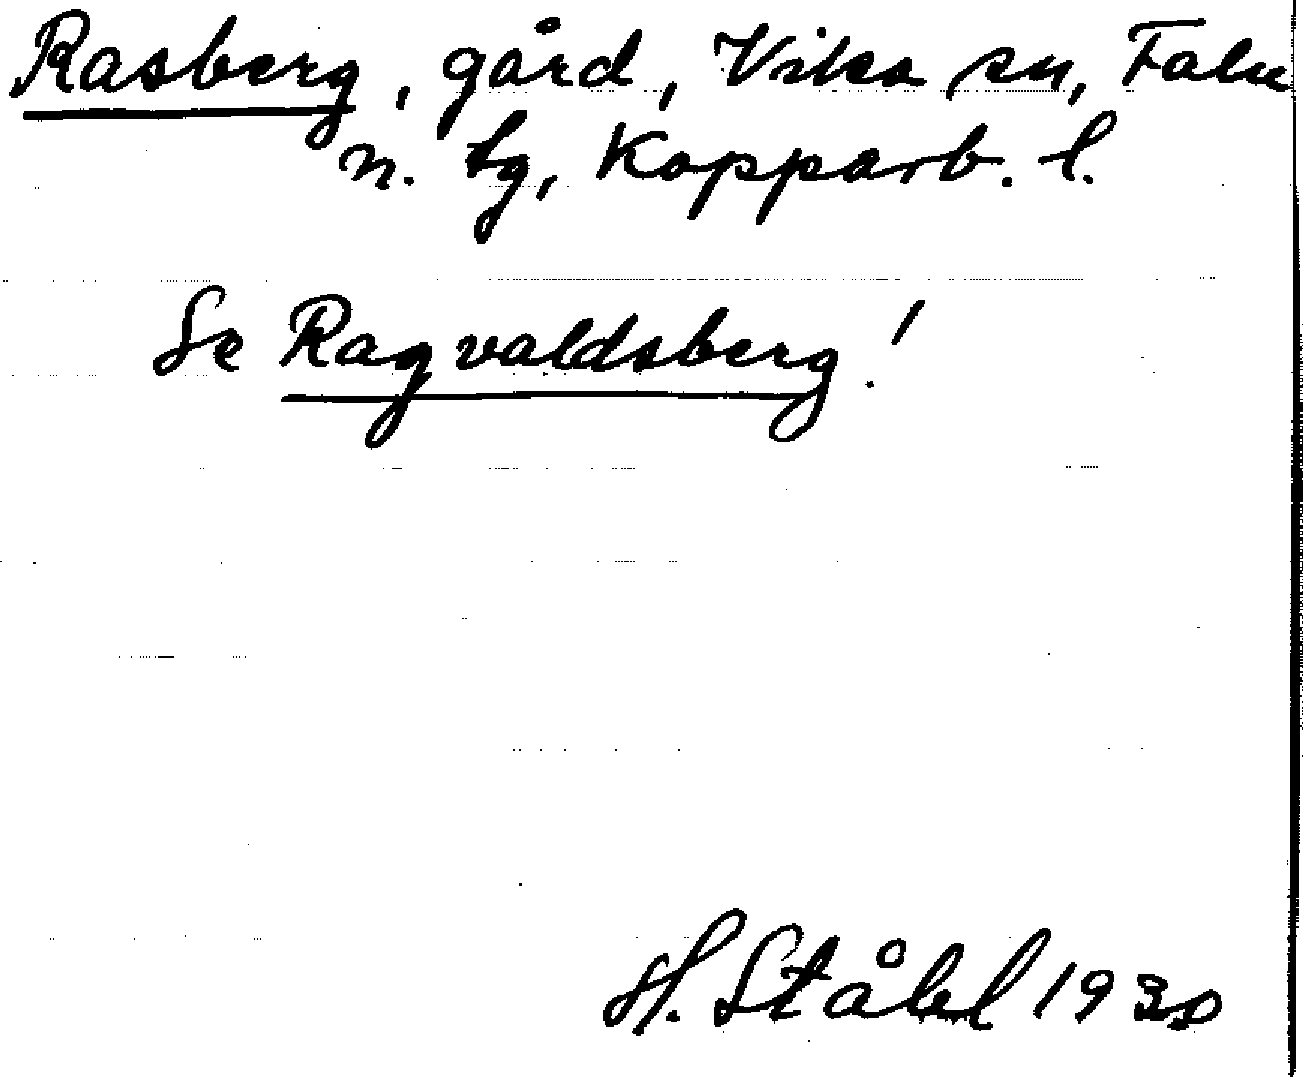 Rasberg, gård, Vika sn, Falu
n. tg, Kopparb. l.
Se Ragvaldsberg!
H. Ståhl 1930